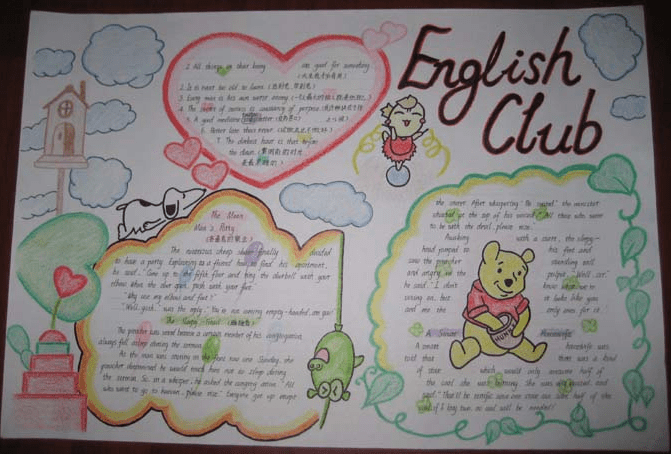 English
Club
1. All things in their being are good for something.
(天生我才必有用)
2. It is never too old to learn. (活到老,学到老)
3. Every man is his own worst enemy. (一个人最大的敌人就是他自己)
4. The secret of success is constancy of purpose.
5. A good medicine tastes bitter. (良药苦口)
6. Better late than never.
7. The darkest hour is that before
the dawn. (黎明前的时分
是最黑暗的)
The Mean
Man's Party
(吝啬鬼的聚会)
The notorious cheap skate finally decided
to have a party. Explaining to a friend how to find his apartment,
he said, "Come up to the fifth floor and ring the doorbell with your
elbow. When the door opens, push with your foot."
"Why use my elbow and foot?"
"Well, gosh," was the reply, "You're not coming empty-handed, are you?"
The Sleepy
The preacher was vexed because a certain member of his congregation
always fell asleep during the sermon.
As the man was snoring in the front row one Sunday, the
preacher determined he would teach him not to sleep during
the sermon. So, in a whisper, he asked the congregation. "All
who want to go to heaven, please rise." Everyone got up except
the snorer. After whispering "Be seated", the minister
shouted at the top of his voice, "All those who want
to be with the devil, please rise."
Awaking with a start, the sleepy-
head jumped to his feet and
saw the preacher standing tall
and angry in the pulpit. "Well, sir,"
he said, "I don't know what we're
voting on, but it looks like you
and me are the only ones for it."
A Smart Housewife
A smart housewife was
told that there was a kind
of stove which would only consume half of
the coal she was burning. She was very excited, and
said, "That'll be terrific! Since one stove can save half of the
coal, if I buy two, no coal will be needed!"
HUNNY